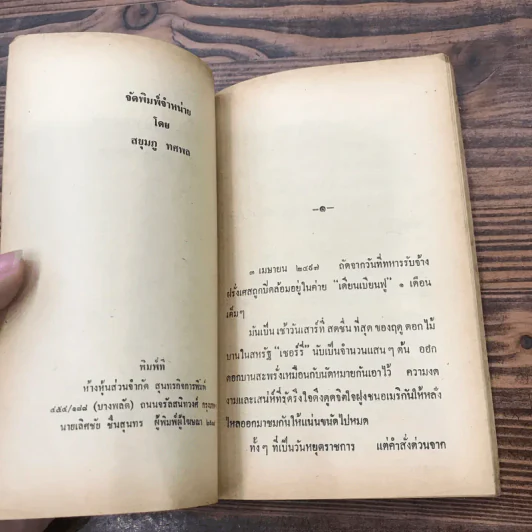 จัดพิมพ์จำหน่าย
โดย
สยุมภู ทศพล
พิมพ์ที่
ห้างหุ้นส่วนจำกัด สุนทรกิจการพิมพ์
๔๕๔/๑๗๘ (บางพลัด) ถนนจรัลสนิทวงศ์
นายเลิศชัย ชื่นสุนทร ผู้พิมพ์ผู้โฆษณา
—๑—
๓ เมษายน ๒๔๙๗ ถัดจากวันที่ทหารรับจ้าง
ฝรั่งเศสถูกปิดล้อมอยู่ในค่าย "เดียนเบียนฟู" ๑ เดือน
เต็มๆ
มันเป็นเช้าวันเสาร์ที่สดชื่นที่สุดของฤดูดอกไม้
บานในสหรัฐ "เชอร์รี่" นับเป็นจำนวนแสนๆ ต้น ออก
ดอกบานสะพรั่งเหมือนกับนัดหมายกันเอาไว้ ความงด
งามและเสน่ห์ที่รัดรึงใจดึงดูดจิตใจฝูงชนอเมริกันให้หลั่ง
ไหลออกมาชมกันให้แน่นขนัดไปหมด
ทั้งๆ ที่เป็นวันหยุดราชการ แต่คำสั่งด่วนจาก